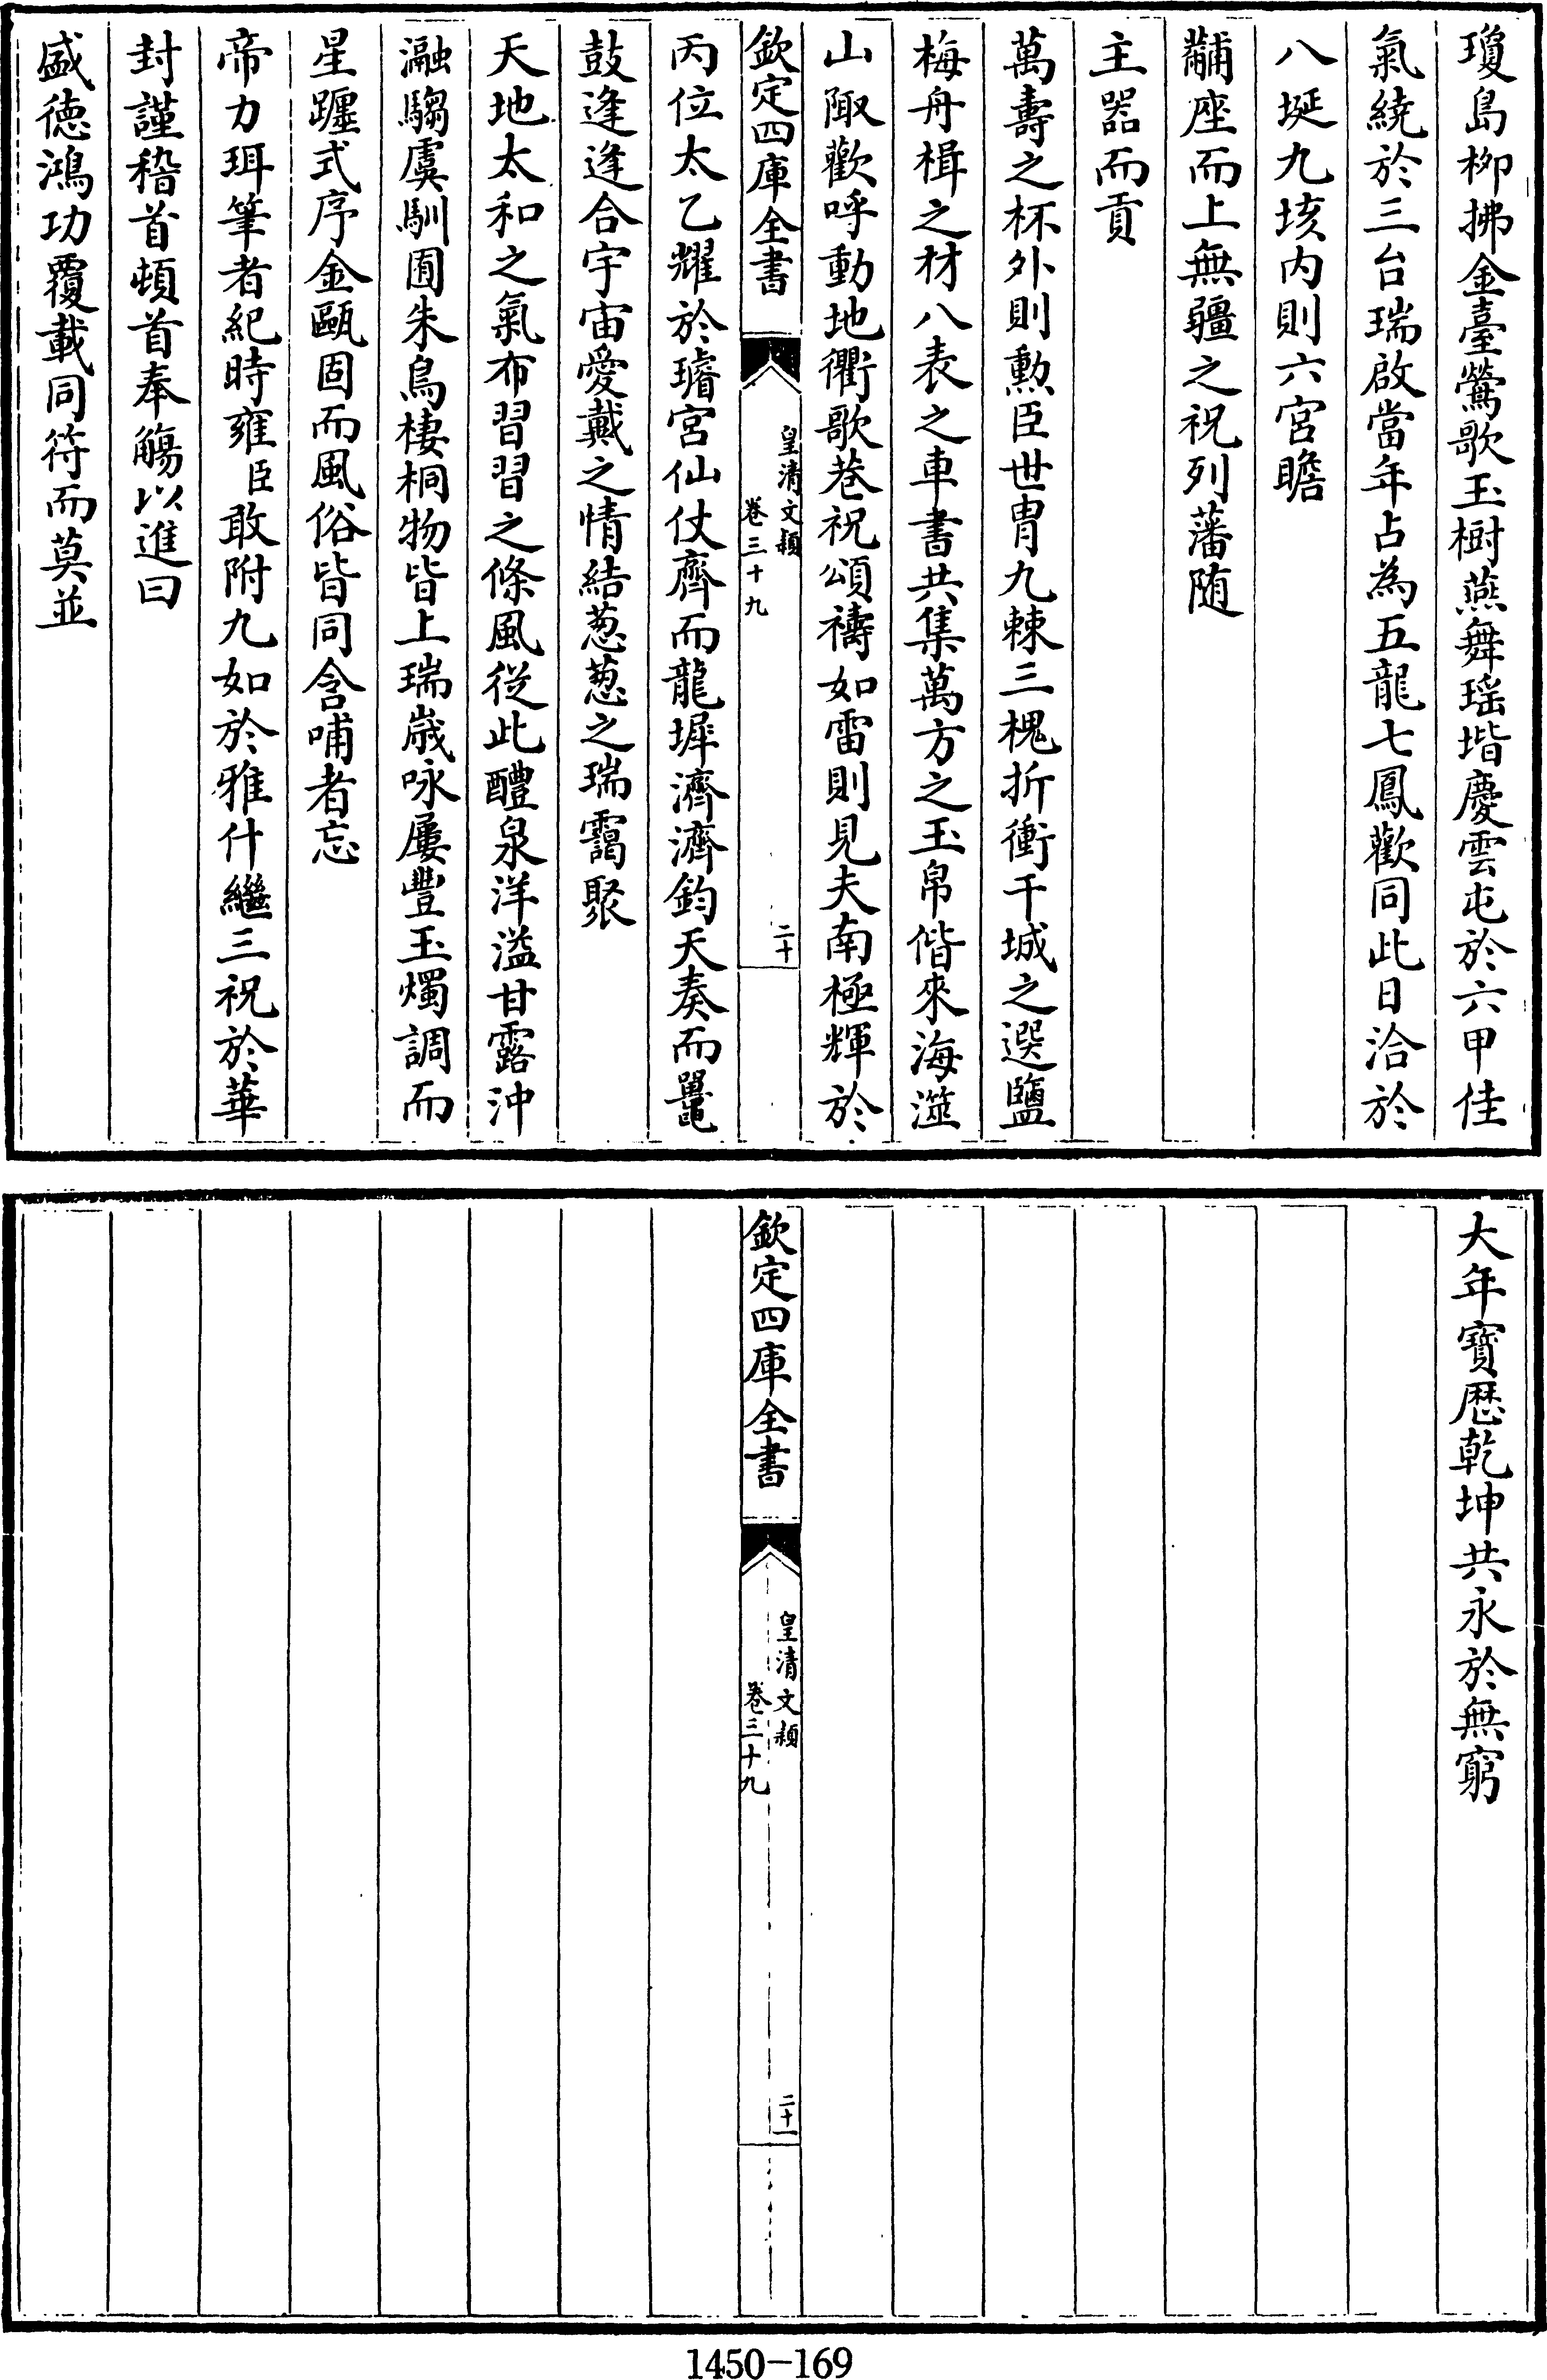 瓊島栁拂金臺鶯歌玉樹燕舞瑶堦慶雲屯於六甲佳
氣繞於三台瑞啟當年占為五龍七鳳歡同此日洽於
八埏九垓内則六宮瞻
黼座而上無疆之祝列藩随
主器而貢
萬壽之杯外則勲臣世胄九棘三槐折衝干城之選鹽
梅舟楫之材八表之車書共集萬方之玉帛偕來海澨
山陬歡呼動地衢歌巷祝頌禱如雷則見夫南極輝於
欽定四庫全書
皇清文穎
卷三十九
二十
丙位太乙耀於璿宮仙仗齊而龍墀濟濟鈞天奏而鼉
鼓逢逢合宇宙愛戴之情結葱葱之瑞靄聚
天地太和之氣布習習之條風從此醴泉洋溢甘露沖
瀜騶虞馴囿朱鳥棲桐物皆上瑞嵗咏屢豐玉燭調而
星躔式序金甌固而風俗皆同含哺者忘
帝力珥筆者紀時雍臣敢附九如於雅什繼三祝於華
封謹稽首頓首奉觴以進曰
盛徳鴻功覆載同符而莫並
大年寶歴乾坤共永於無窮
欽定四庫全書
皇清文穎
卷三十九
二十一
1450-169